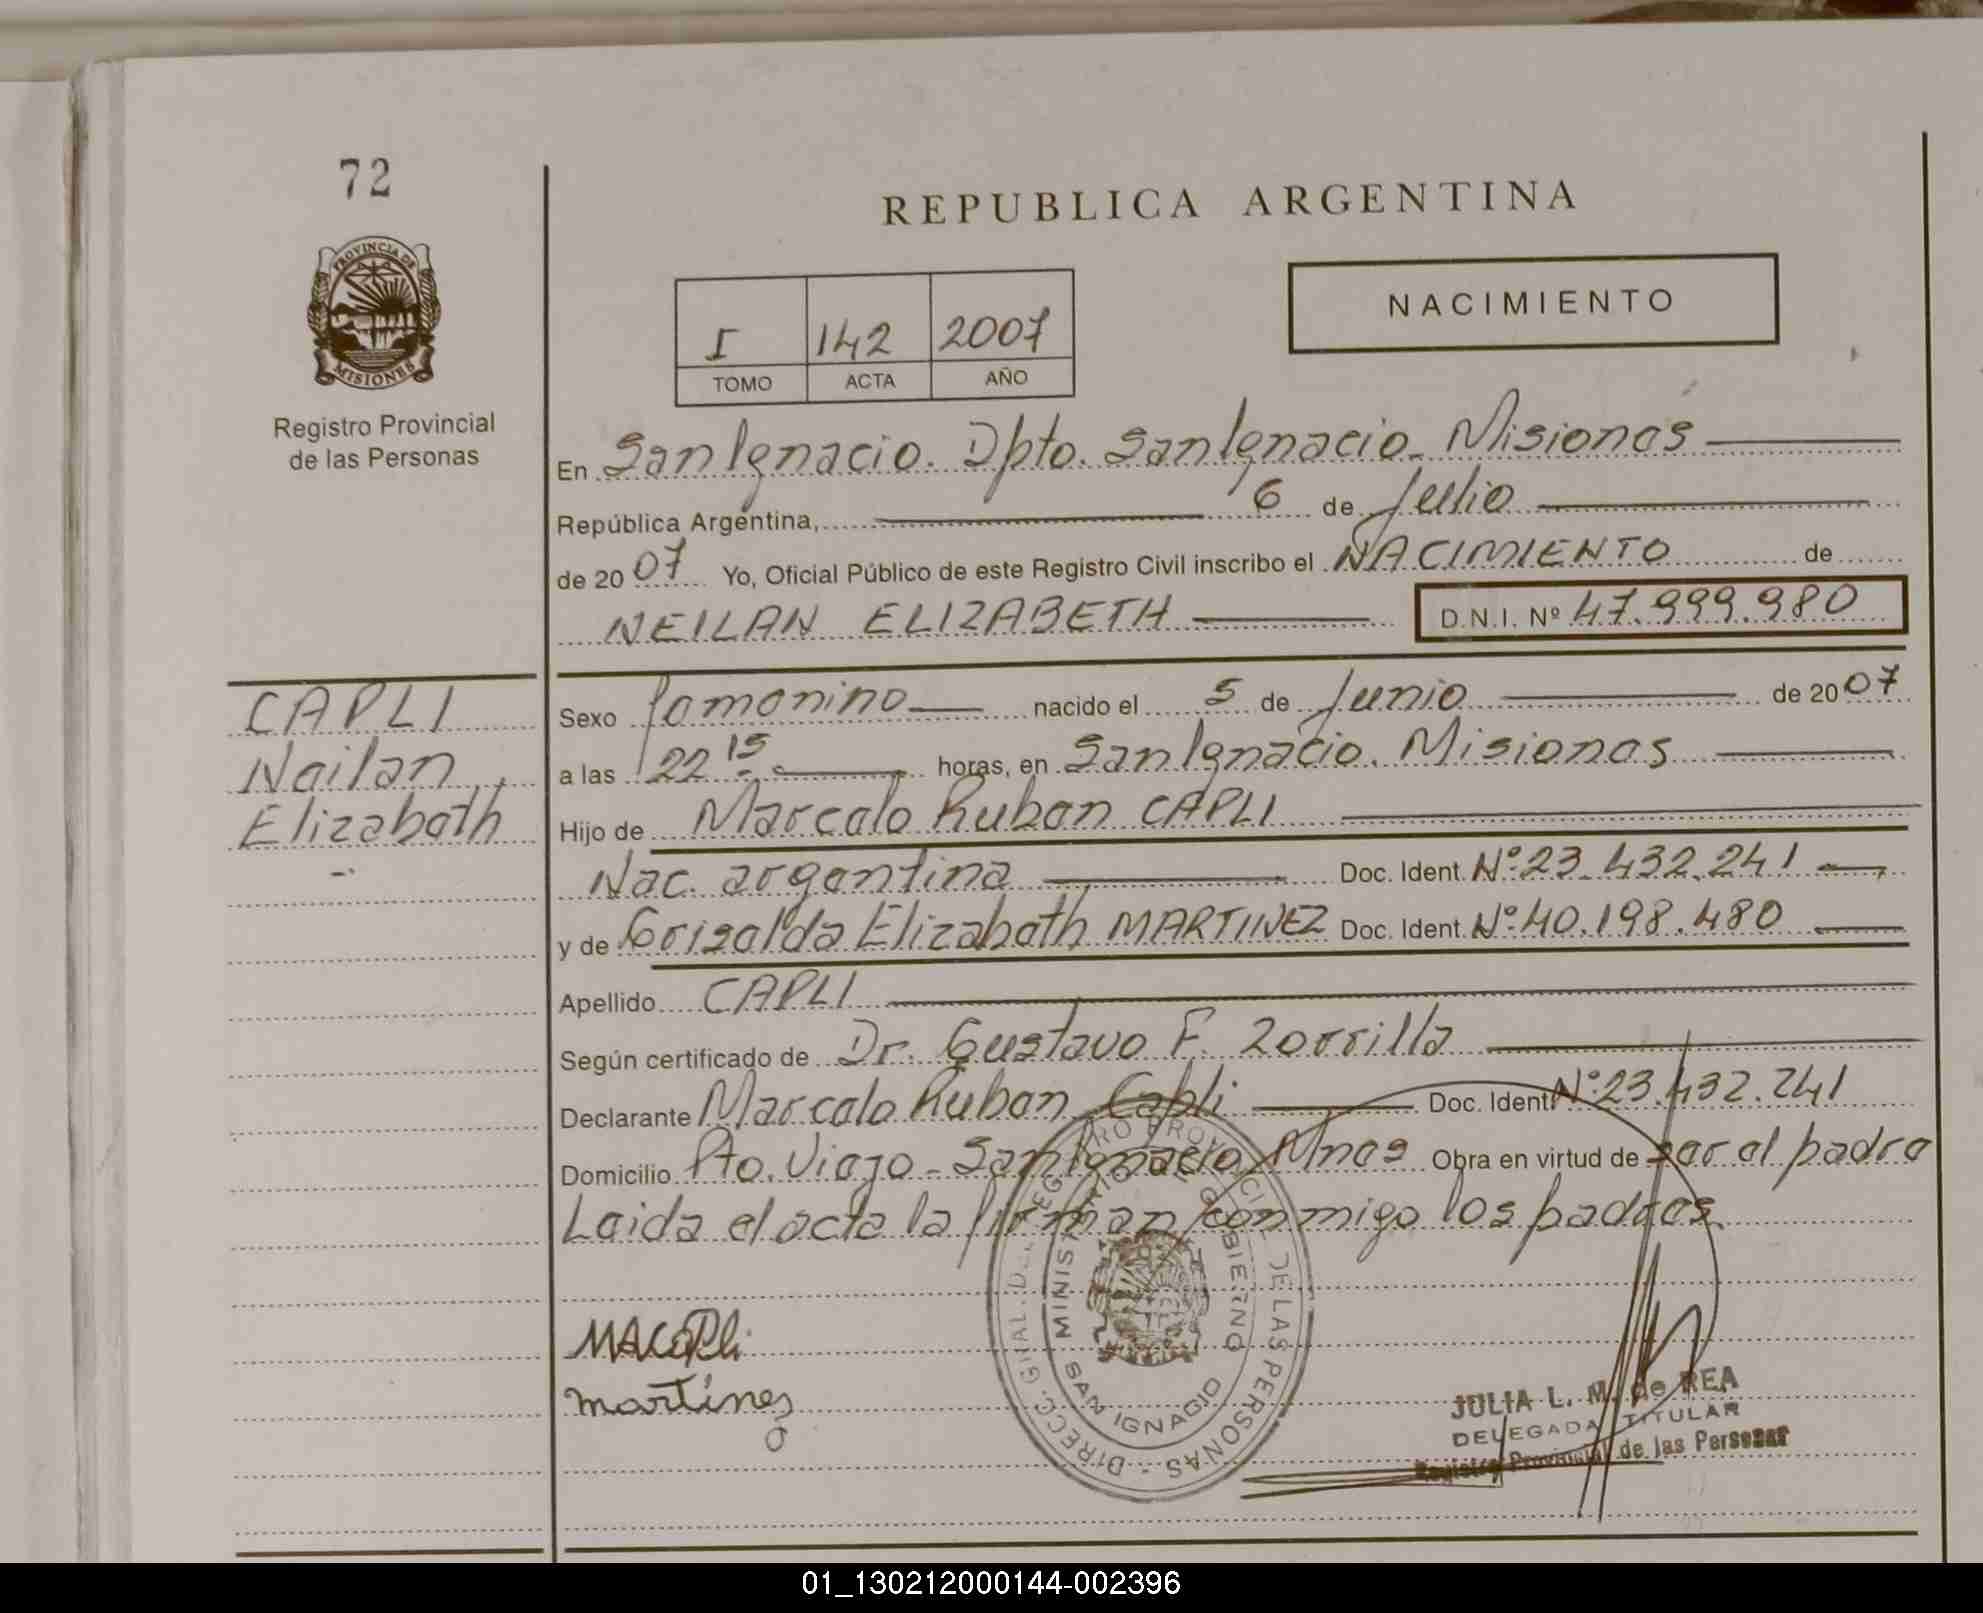 72
REPUBLICA ARGENTINA
PROVINCIA DE
MISIONES
Registro Provincial
de las Personas
I 142 2007
TOMO ACTA AÑO
NACIMIENTO
En San Ignacio. Dpto. San Ignacio. Misiones
República Argentina, 6 de Julio
de 2007 Yo, Oficial Público de este Registro Civil inscribo el NACIMIENTO de
NEILAN ELIZABETH D.N.I. Nº 47.999.980
CAPLI
Neilan
Elizabeth
Sexo femenino nacido el 5 de Junio de 2007
a las 22 15 horas, en San Ignacio. Misiones
Hijo de Marcelo Ruben CAPLI
Nac. argentina Doc. Ident. Nº 23.432.241
y de Griselda Elizabeth MARTINEZ Doc. Ident. Nº 40.198.480
Apellido CAPLI
Según certificado de Dr. Gustavo F. Zorrilla
Declarante Marcelo Ruben Capli Doc. Ident. Nº 23.432.241
Domicilio Pto. Viejo - San Ignacio Mnes Obra en virtud de ser el padre
Leida el acta la firman conmigo los padres.
MACAPLi
martínez
DIRECC. GRAL. DEL REGISTRO PROVINCIAL DE LAS PERSONAS
MINISTERIO DE GOBIERNO
SAN IGNACIO
JULIA L. M. de REA
DELEGADA TITULAR
Registro Provincial de las Personas
01_130212000144-002396